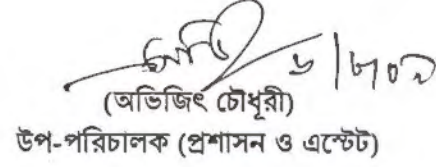 ৬/৮/০২
(অভিজিৎ চৌধূরী)
উপ-পরিচালক (প্রশাসন ও এস্টেট)